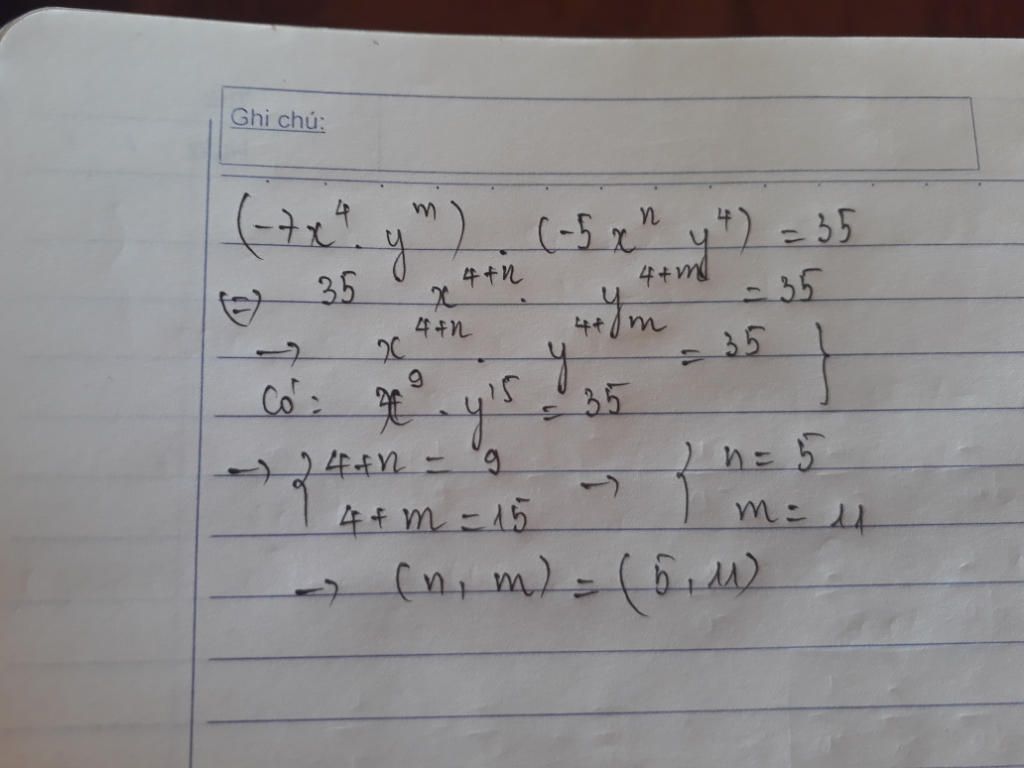 Ghi chú:
(-7x⁴ . yᵐ) . (-5xⁿ y⁴) = 35
(=) 35 x⁴⁺ⁿ . y⁴⁺ᵐ = 35
→ x⁴⁺ⁿ . y⁴⁺ᵐ = 35 }
Có: x⁹ . y¹⁵ = 35
→ { 4+n = 9 → { n = 5
4+m = 15 m = 11
→ (n, m) = (5, 11)